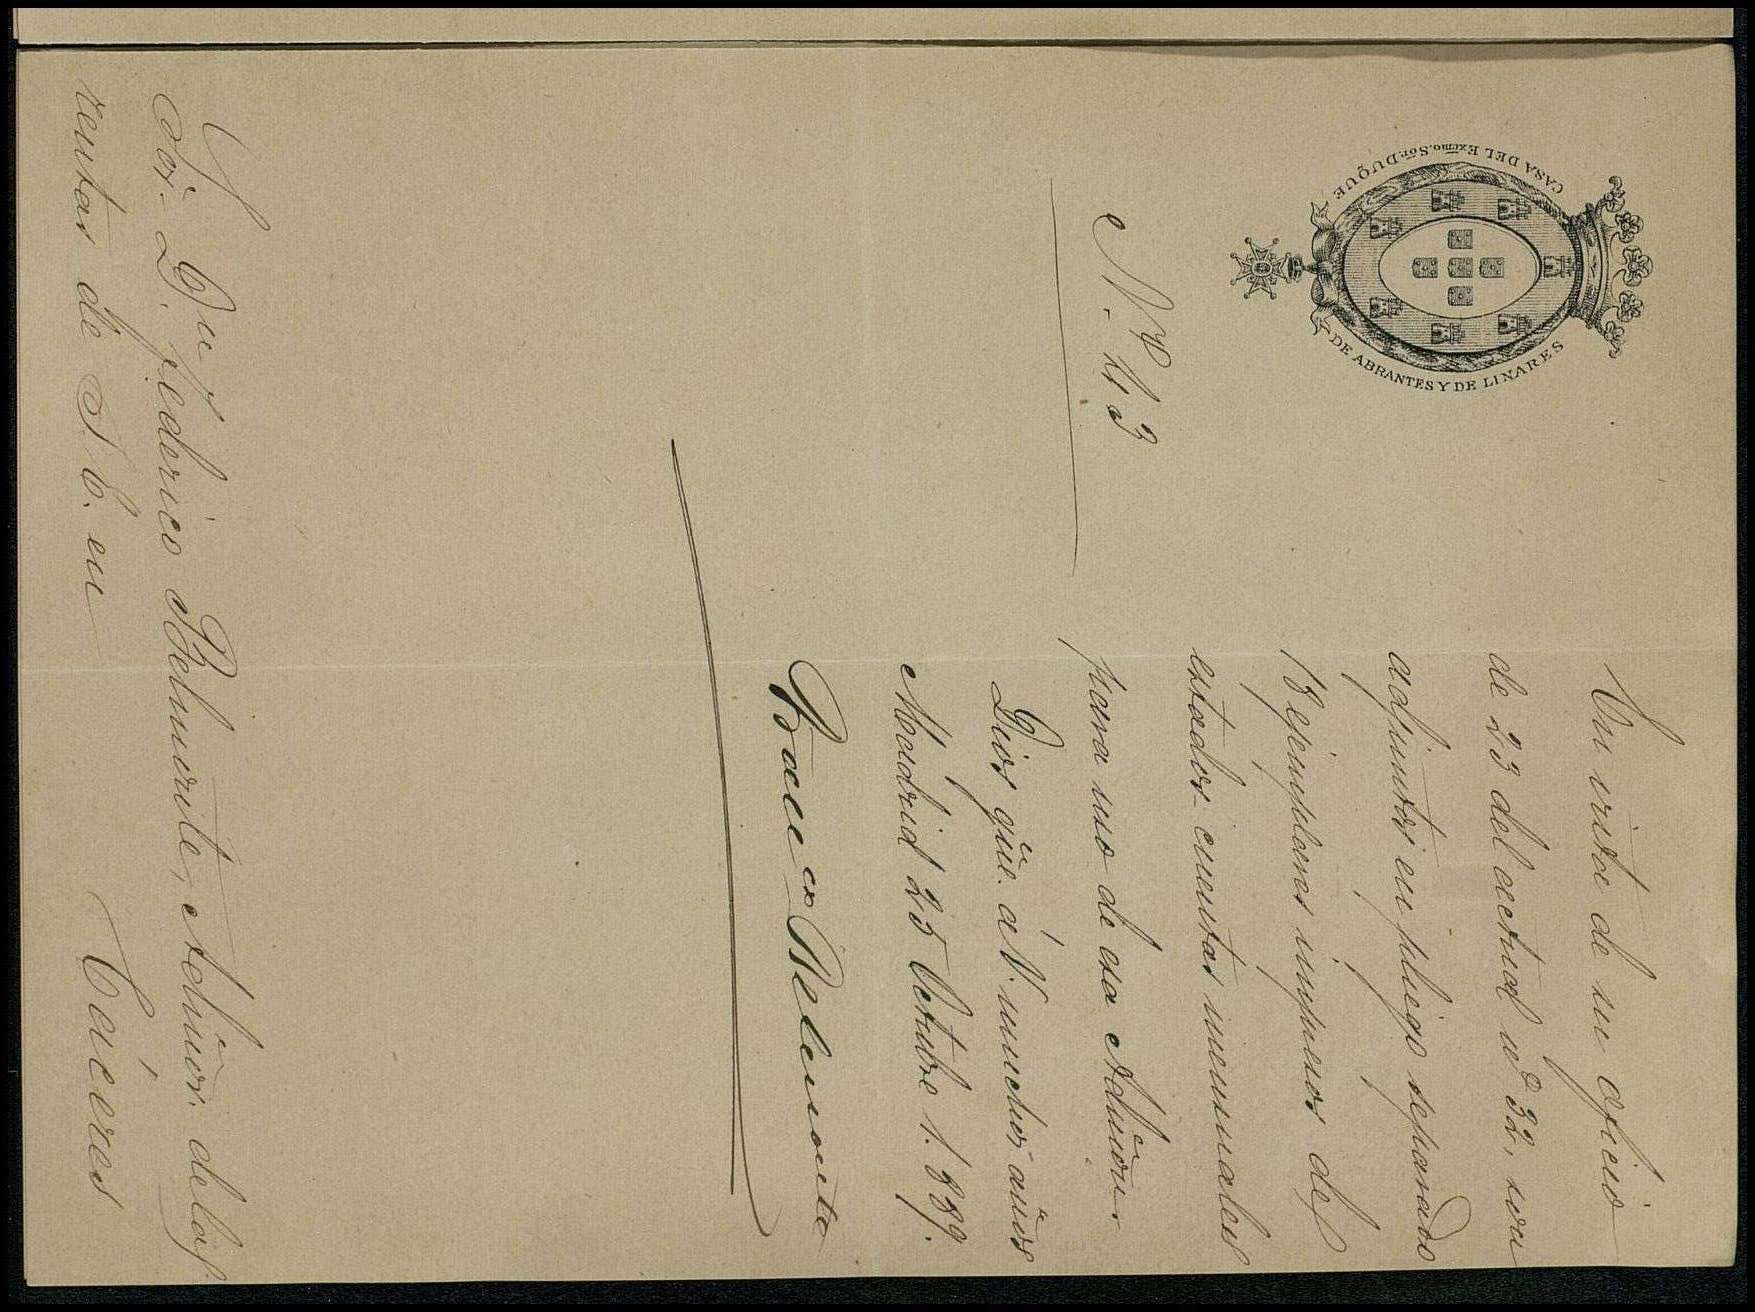 CASA DEL Excmo. Sor. DUQUE
DE ABRANTES Y DE LINARES
N.º 43
En vista de su oficio
de 23 del actual nº 32, son
adjuntos en pliego separado
18 ejemplares impresos del
estados cuentas mensuales
para uso de esa Admon.
Dios gue. á V. muchos años
Madrid 25 Octubre 1.889.
Franco Belmonte
Sor. D. Federico Belmonte, Admor. de las
rentas de S. E. en Cáceres